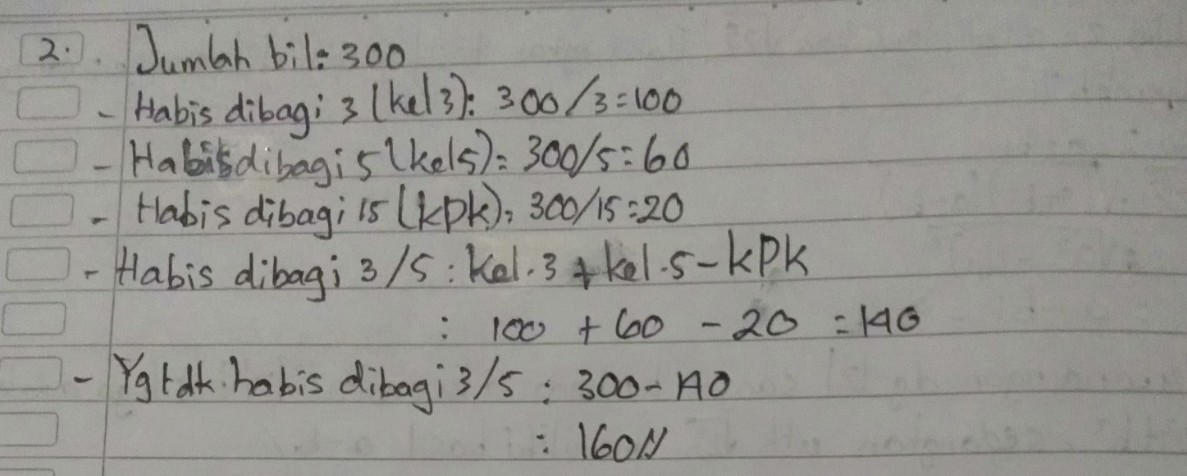 2. Jumlah bil: 300
- Habis dibagi 3 (kel 3): 300/3 = 100
- Habis dibagi 5 (kel 5) = 300/5 = 60
- Habis dibagi 15 (kpk), 300/15 = 20
- Habis dibagi 3/5 : Kel. 3 + kel. 5 - kPk
: 100 + 60 - 20 = 140
- Yg tdk. habis dibagi 3/5 : 300 - 140
: 160//